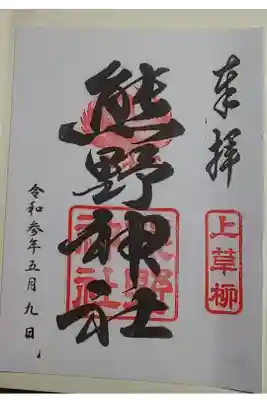 奉拝
上草柳
熊野神社
熊野
神社
令和参年五月九日